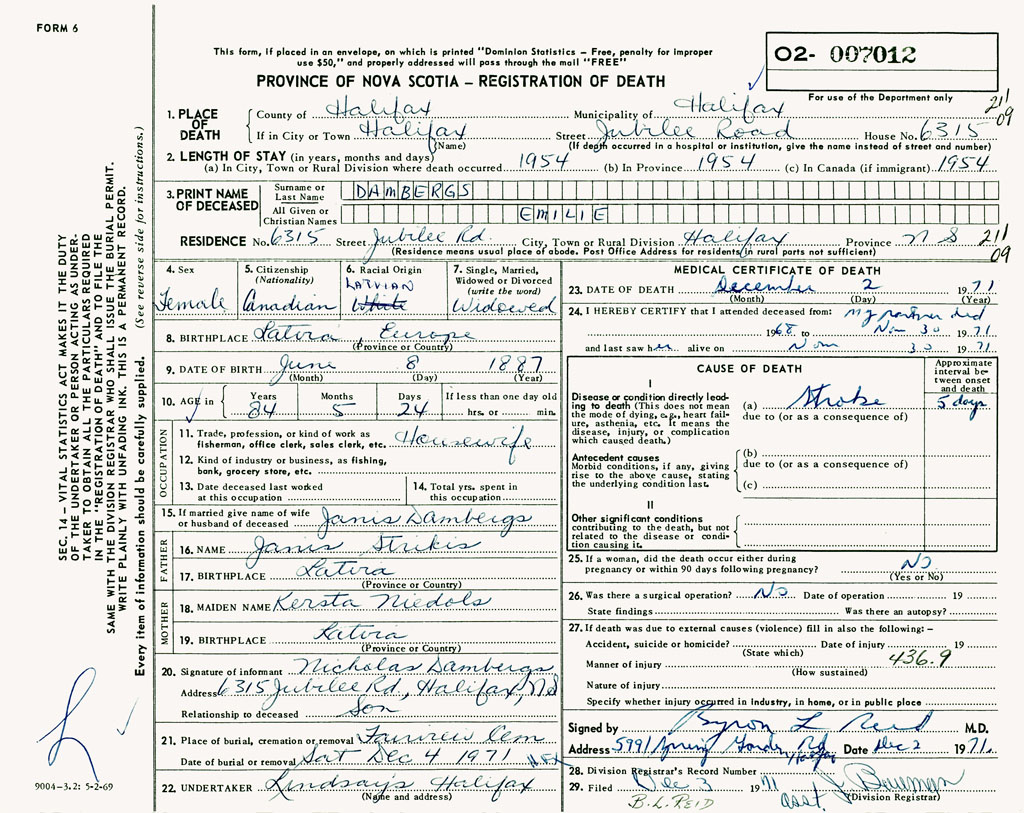 FORM 6
This form, if placed in an envelope, on which is printed "Dominion Statistics – Free, penalty for improper
use $50," and properly addressed will pass through the mail "FREE"
PROVINCE OF NOVA SCOTIA – REGISTRATION OF DEATH
02- 007012
For use of the Department only
211
09
1. PLACE OF DEATH
County of Halifax Municipality of Halifax
If in City or Town Halifax Street Jubilee Road House No. 6315
(Name) (If death occurred in a hospital or institution, give the name instead of street and number)
2. LENGTH OF STAY (in years, months and days)
(a) In City, Town or Rural Division where death occurred 1954 (b) In Province 1954 (c) In Canada (if immigrant) 1954
3. PRINT NAME OF DECEASED
Surname or Last Name DAMBERGS
All Given or Christian Names EMILIE
RESIDENCE No. 6315 Street Jubilee Rd. City, Town or Rural Division Halifax Province N S 211
09
(Residence means usual place of abode. Post Office Address for residents in rural parts not sufficient)
4. Sex
Female
5. Citizenship
(Nationality)
Canadian
6. Racial Origin
LATVIAN
White
7. Single, Married,
Widowed or Divorced
(write the word)
Widowed
8. BIRTHPLACE Latvia Europe
(Province or Country)
9. DATE OF BIRTH June 8 1887
(Month) (Day) (Year)
10. AGE in Years Months Days If less than one day old
84 5 24 hrs. or min.
OCCUPATION
11. Trade, profession, or kind of work as
fisherman, office clerk, sales clerk, etc. Housewife
12. Kind of industry or business, as fishing,
bank, grocery store, etc.
13. Date deceased last worked
at this occupation
14. Total yrs. spent in
this occupation
15. If married give name of wife
or husband of deceased Janis Dambergs
FATHER
16. NAME Janis Strikis
17. BIRTHPLACE Latvia
(Province or Country)
MOTHER
18. MAIDEN NAME Kersta Niedols
19. BIRTHPLACE Latvia
(Province or Country)
20. Signature of informant Nicholas Dambergs
Address 6315 Jubilee Rd, Halifax, NS
Relationship to deceased Son
21. Place of burial, cremation or removal Fairview Cem
Date of burial or removal Sat Dec 4 1971 HFX
22. UNDERTAKER Lindsay's Halifax
(Name and address)
MEDICAL CERTIFICATE OF DEATH
23. DATE OF DEATH December 2 1971
(Month) (Day) (Year)
24. I HEREBY CERTIFY that I attended deceased from: my partner did
1968 to Nov 30 1971
and last saw her alive on Nov 30 1971
CAUSE OF DEATH
Approximate
interval be-
tween onset
and death
I
Disease or condition directly lead-
ing to death (This does not mean
the mode of dying, e.g., heart fail-
ure, asthenia, etc. It means the
disease, injury, or complication
which caused death.)
(a) Stroke 5 days
due to (or as a consequence of)
Antecedent causes
Morbid conditions, if any, giving
rise to the above cause, stating
the underlying condition last.
(b)
due to (or as a consequence of)
(c)
II
Other significant conditions
contributing to the death, but not
related to the disease or condi-
tion causing it.
25. If a woman, did the death occur either during
pregnancy or within 90 days following pregnancy? No
(Yes or No)
26. Was there a surgical operation? No Date of operation 19
State findings Was there an autopsy?
27. If death was due to external causes (violence) fill in also the following: –
Accident, suicide or homicide? Date of injury 19
(State which) 436.9
Manner of injury
(How sustained)
Nature of injury
Specify whether injury occurred in industry, in home, or in public place
Signed by Byron L Reid M.D.
Address 5991 Spring Garden Rd Halifax Date Dec 2 1971.
28. Division Registrar's Record Number
29. Filed Dec 3 1971 asst. J Bowman
(Division Registrar)
B.L. REID
SEC. 14 – VITAL STATISTICS ACT MAKES IT THE DUTY
OF THE UNDERTAKER OR PERSON ACTING AS UNDER-
TAKER TO OBTAIN ALL THE PARTICULARS REQUIRED
IN THE "REGISTRATION OF DEATH" AND TO FILE THE
SAME WITH THE DIVISION REGISTRAR WHO SHALL ISSUE THE BURIAL PERMIT.
WRITE PLAINLY WITH UNFADING INK. THIS IS A PERMANENT RECORD.
Every item of information should be carefully supplied. (See reverse side for instructions.)
9004-3.2: 5-2-69